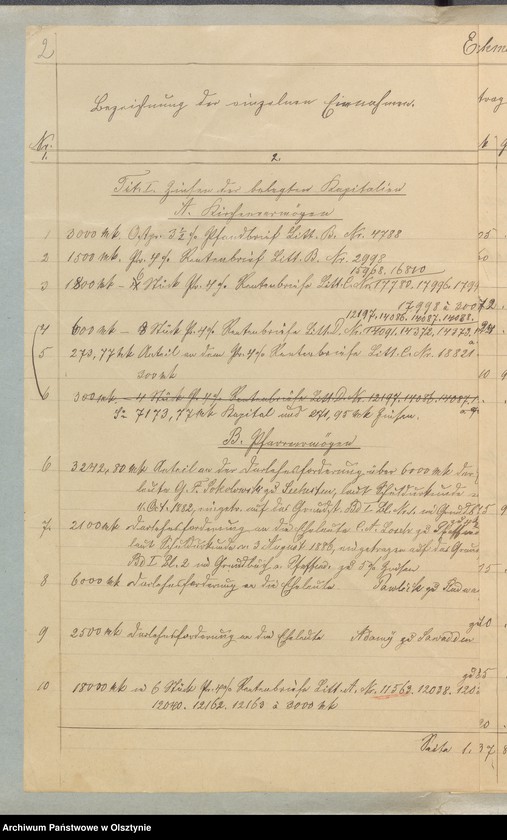 2
Bezeichnung der einzelnen Einnahmen.
Nr.
1.
2.
Tit. I. Zinsen der belegten Kapitalien
A. Kirchenvermögen
1 3000 Mk. Ostpr. 3½ % Pfandbrief Litt. B. Nr. 4788
2 1500 Mk. Pr. 4 % Rentenbrief Litt. B. Nr. 2998
15968. 16810
3 1800 Mk - 6 Stück Pr. 4 % Rentenbriefe Litt. C. No. 17780. 17796.
17998 à 300
12197. 14086. 14087. 14088.
4 600 Mk - 8 Stück Pr. 4 % Rentenbriefe Litt. D. No. 14091. 14372. 14373.
5 273,77 Mk Anteil an dem Pr. 4 % Rentenbriefe Litt. C. No. 18821
300 Mk
6 300 Mk. - 4 Stück Pr. 4 % Rentenbriefe Litt. D. Nr. 12197. 14086. 14087.
Sa 7173,77 Mk Kapital und 271,95 Mk Zinsen.
B. Pfarrvermögen
6 3242,80 Mk Anteil an der Darlehnsforderung über 6000 Mk der
leute G. F. Sokolowski zu, laut Schuldurkunde
11. Oct. 1882, eingetr. auf das Grundst. Bd I. Bl. No. 1.
7. 2100 Mk Darlehnsforderung an die Eheleute C. A. zu
laut Schuldurkunde v. 3 August 1886, eingetragen auf das
Bd I. Bl. 2. zu 5 % Zinsen
8 6000 Mk Darlehnsforderung an die Eheleute Pawlick zu
9 2500 Mk Darlehnsforderung an die Eheleute Adamy zu Sawadden
10 18000 Mk in 6 Stück Pr. 4 % Rentenbriefe Litt. A. Nr. 11563. 12038.
12040. 12162. 12163 à 3000 Mk
Seite 1.
Archiwum Państwowe w Olsztynie